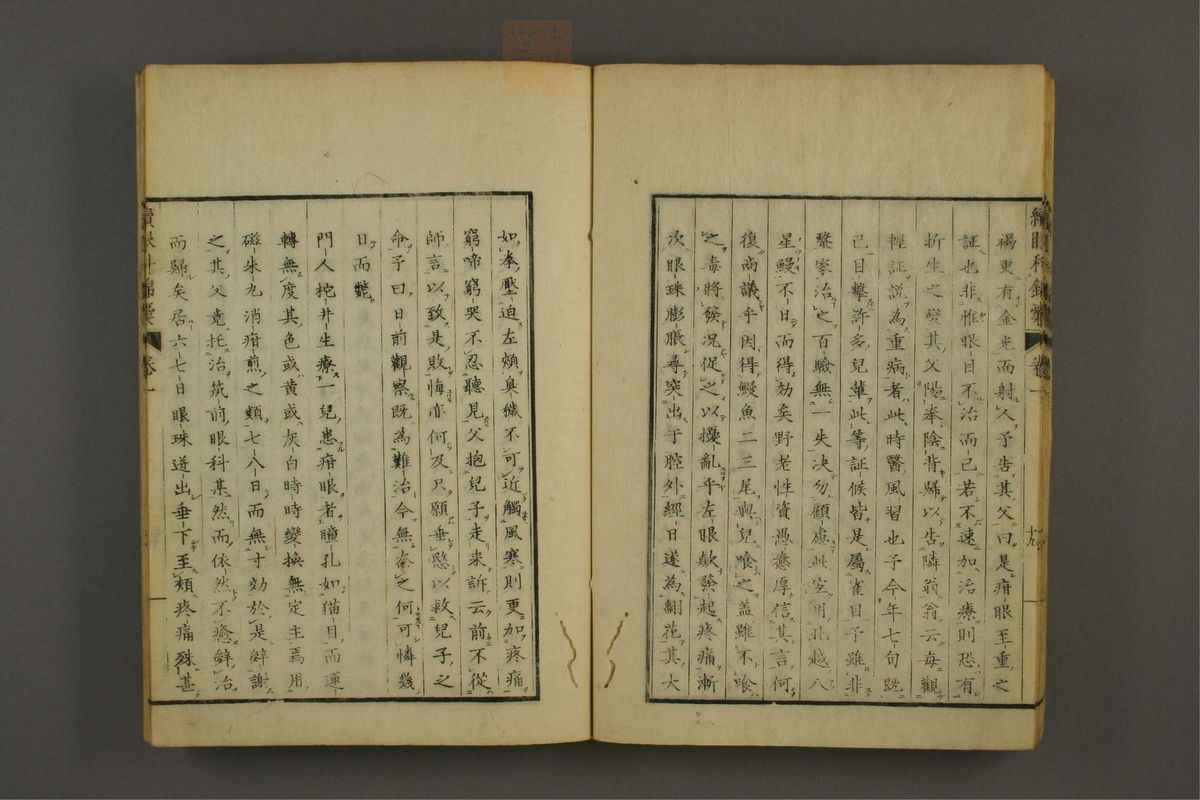 褐更有金光而射人予告其父曰是疳眼至重之
証也非惟眼目不治而已若不速加治療則恐有
折生之變其父陽奉陰背歸以告隣翁翁云每觀
輕証説為重病者此時醫風習也予今年七旬既
已目擊許多兒輩此等証候皆是屬雀目予雖非
醫家治之百驗無一失决勿顧慮此宜用北越八
星鰻不日而得効矣野老性資愚惷厚信其言何
復商議乎因得鰻魚二三尾與兒喰之盖雖不喰
之毒將發况促之以擾亂乎左眼歘發起疼痛漸
次眼珠膨脹尋突出于腔外經日遂為翻花其大
如拳壓迫左頰臭穢不可近觸風寒則更加疼痛
窮啼窮哭不忍聽見父抱兒子走来訴云前不從
師言以致是敗悔亦何及只願垂愍以救兒子之
命予曰日前觀察既為難治今無奈之何可憐幾
日而斃
門人挖井生療一兒患疳眼者瞳孔如猫目而運
轉無度其色或黄或灰白時時變換無定主焉用
磁朱丸消疳煎之類七八日而無寸効於是辭謝
之其父竟托治筑前眼科某然而依然不癒辭治
而歸矣居六七日眼珠迸出垂下至頰疼痛殊甚
續眼科錦囊 卷一
十九